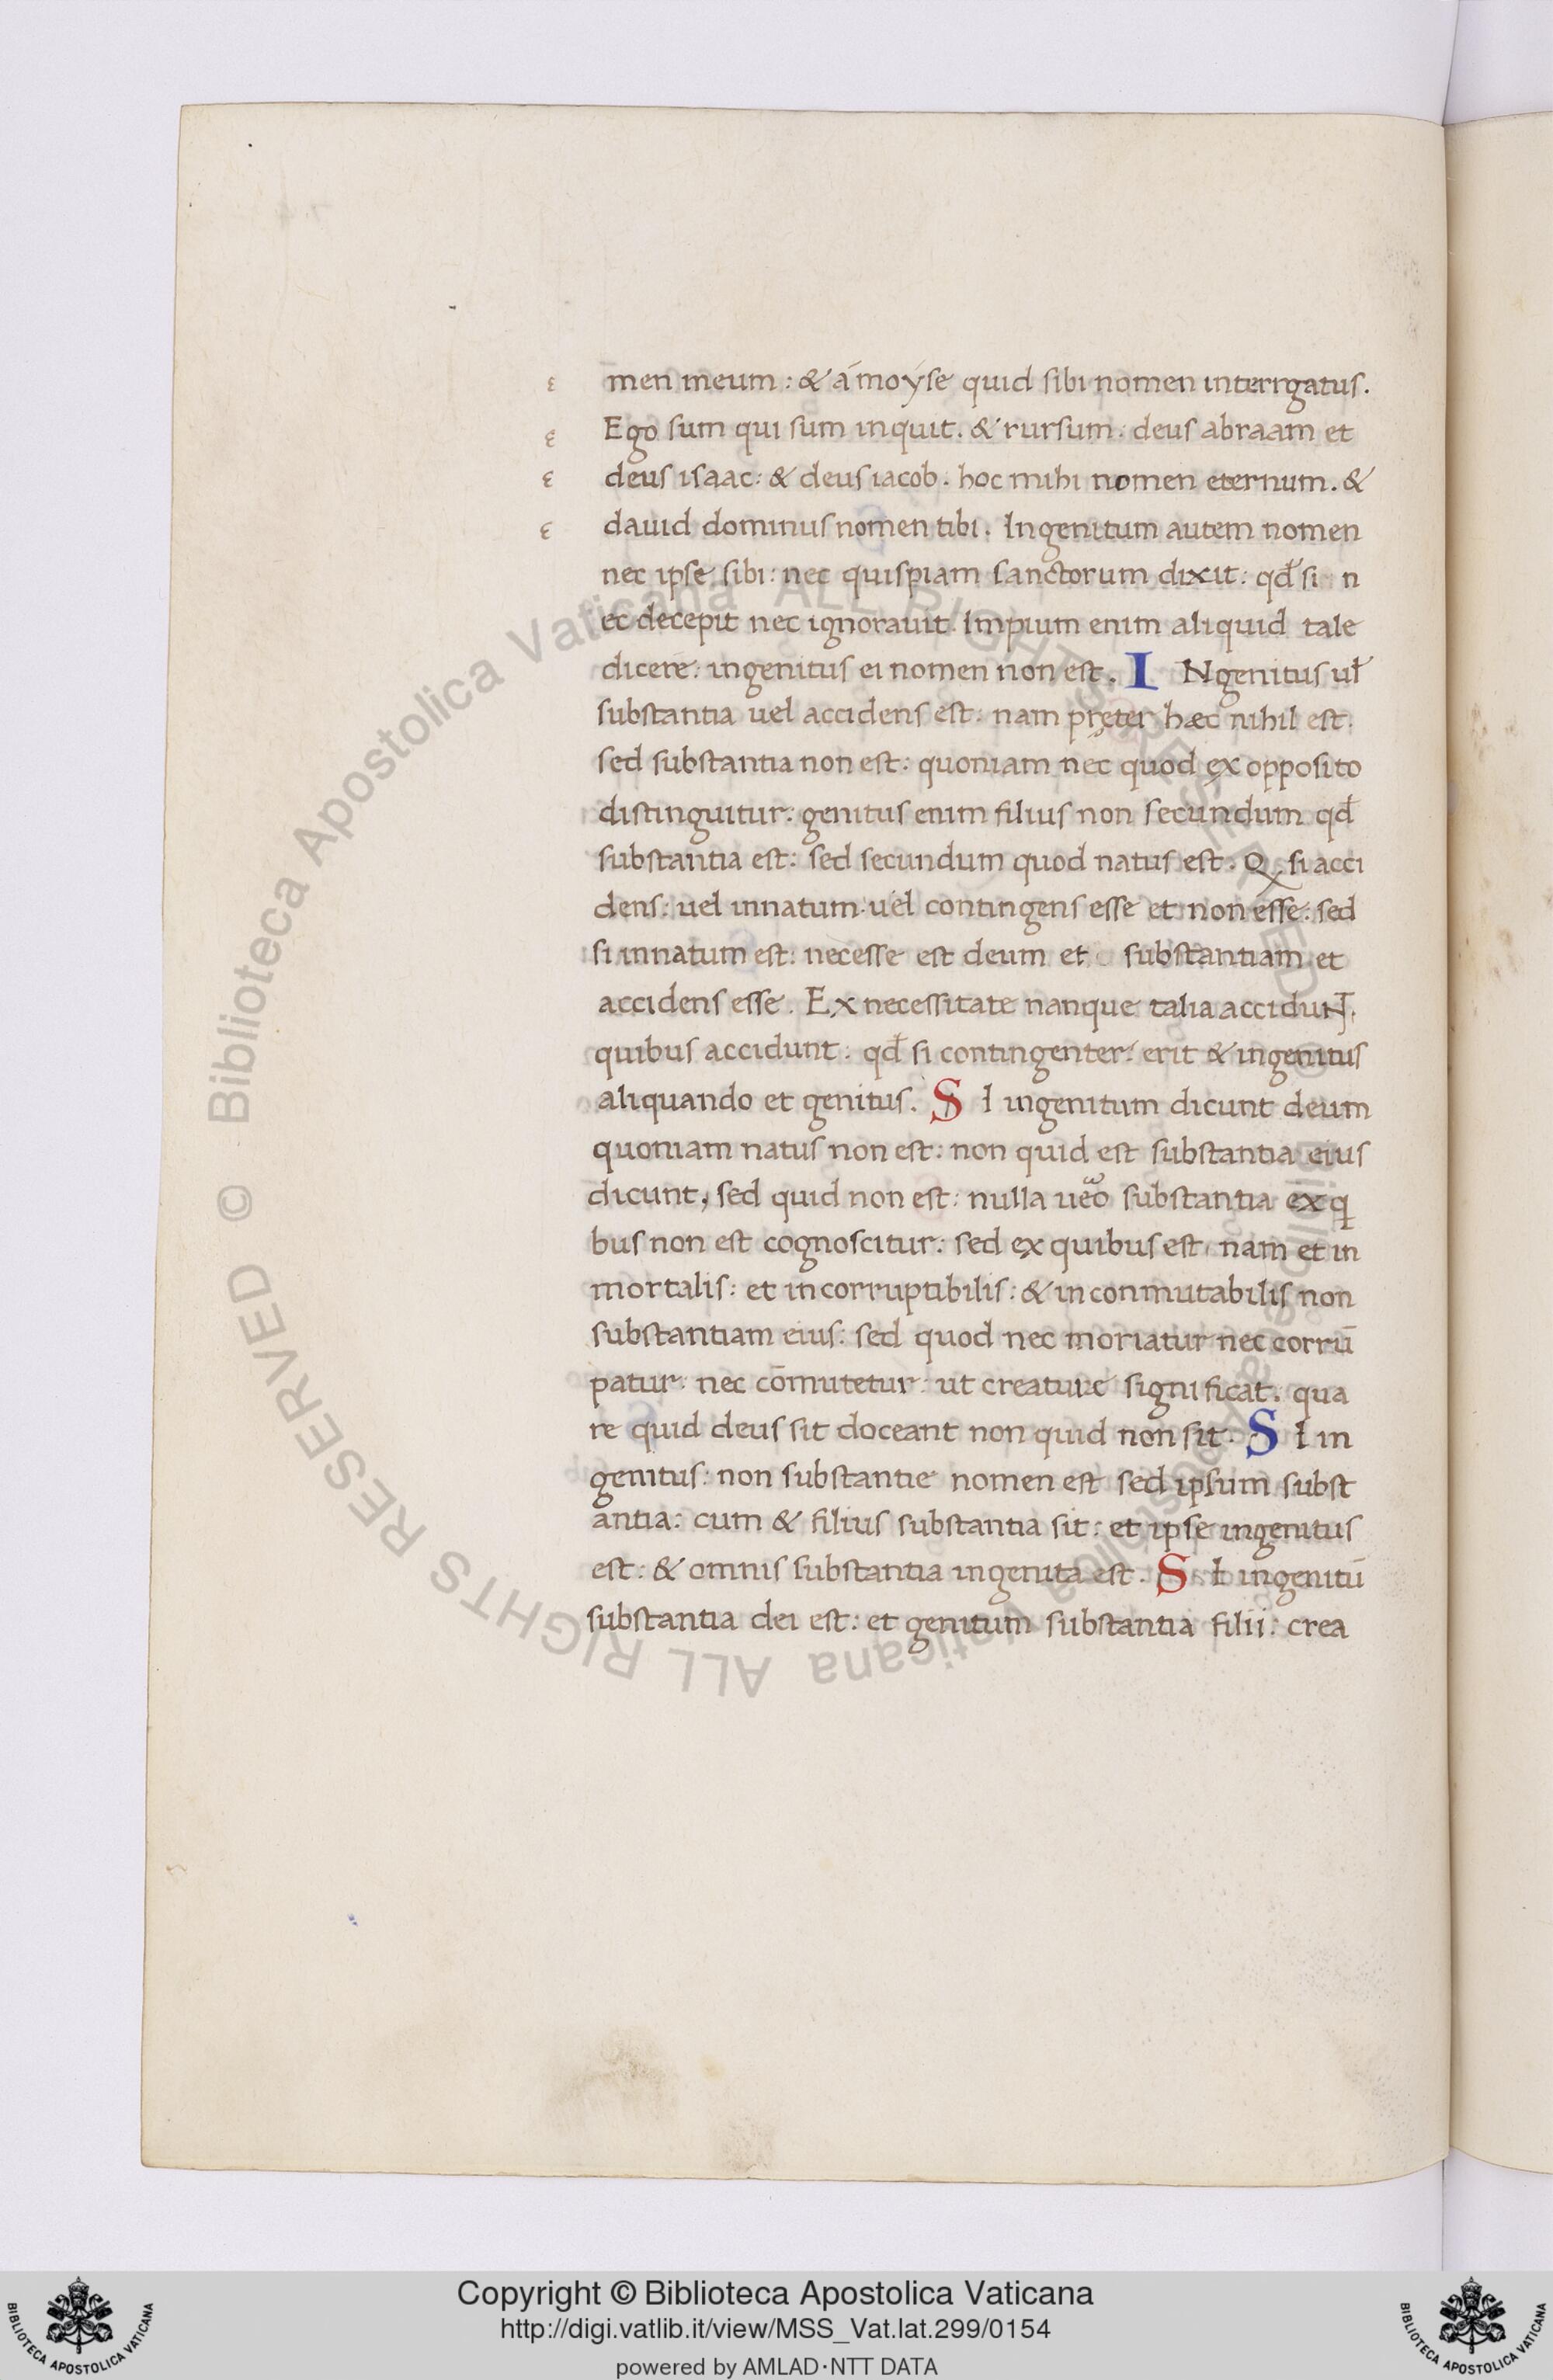 men meum : & á moyse quid sibi nomen interrgatus .
Ego sum qui sum inquit . & rursum : deus abraam et
deus isaac : & deus iacob . hoc mihi nomen eternum . &
dauid dominus nomen tibi . Ingenitum autem nomen
nec ipse sibi : nec quispiam sanctorum dixit : qđ si n
ec decepit nec ignorauit . Impium enim aliquid tale
dicere : ingenitus ei nomen non est . I Ngenitus uƚ
substantia uel accidens est : nam pręter hæc nihil est .
sed substantia non est : quoniam nec quod ex opposito
distinguitur : genitus enim filius non secundum qđ
substantia est : sed secundum quod natus est . Q si acci
dens : uel innatum uel contingens esse et non esse : sed
si innatum est : necesse est deum et substantiam et
accidens esse . Ex necessitate nanque talia accidunt .
quibus accidunt : qđ si contingenter : erit & ingenitus
aliquando et genitus . S I ingenitum dicunt deum
quoniam natus non est : non quid est substantia eius
dicunt , sed quid non est : nulla ueo substantia ex q
bus non est cognoscitur : sed ex quibus est , nam et in
mortalis : et incorruptibilis : & inconmutabilis non
substantiam eius : sed quod nec moriatur nec corrū
patur : nec cōmutetur : ut creature significat . qua
re quid deus sit doceant non quid non sit . S I in
genitus : non substantie nomen est sed ipsum subst
antia : cum & filius substantia sit : et ipse ingenitus
est : & omnis substantia ingenita est . S I ingenitū
substantia dei est : et genitum substantia filii : crea
© Biblioteca Apostolica Vaticana ALL RIGHTS RESERVED
Copyright © Biblioteca Apostolica Vaticana
http://digi.vatlib.it/view/MSS_Vat.lat.299/0154
powered by AMLAD·NTT DATA
BIBLIOTECA APOSTOLICA VATICANA
BIBLIOTECA APOSTOLICA VATICANA